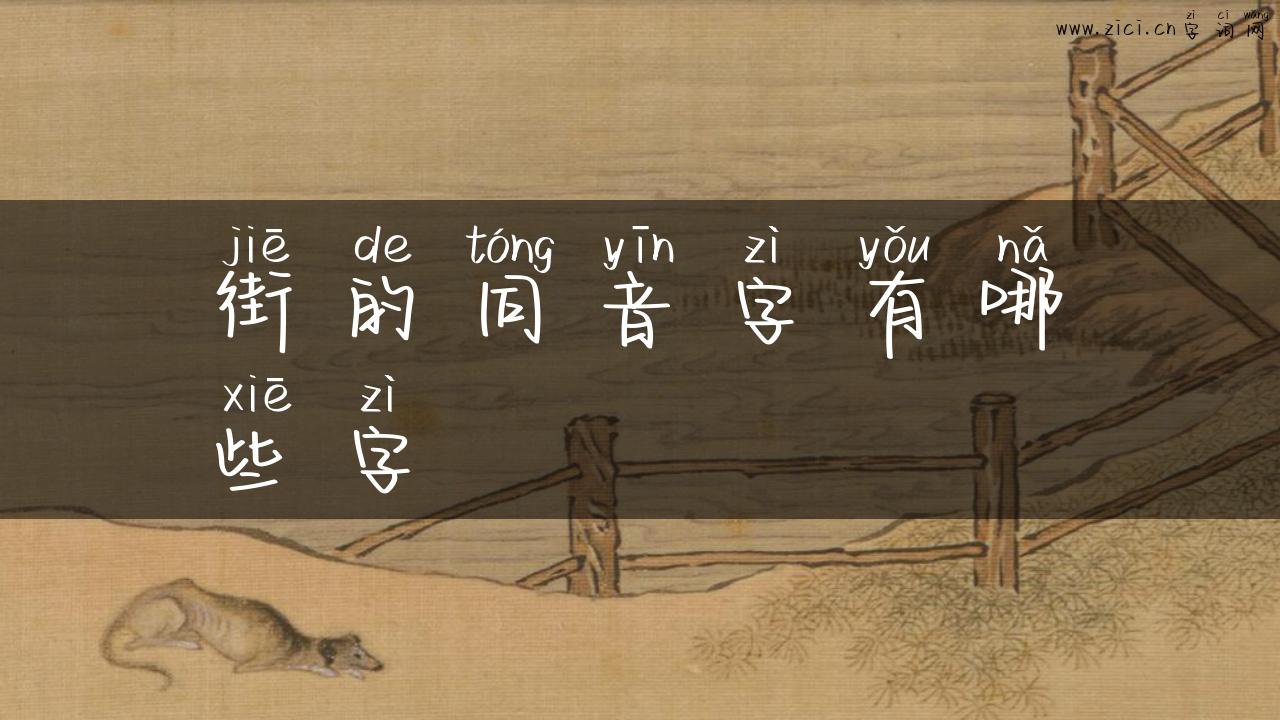 zì cí wǎng
www.zici.cn字词网
jiē de tóng yīn zì yǒu nǎ
街的同音字有哪
xiē zì
些字